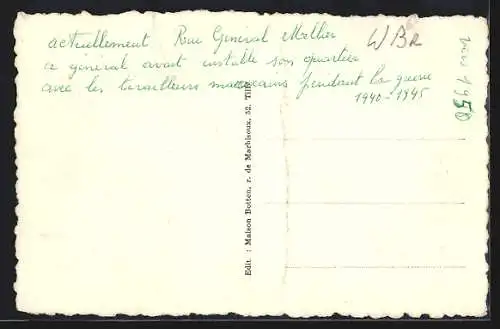 actuellement Rue Général Mellier
ce général avait installé son quartier
avec les tirailleurs marocains pendant la guerre
1940 - 1945
W BR
1950
Edit : Maison Botton, r. de Marbisoux, 52, Tilly